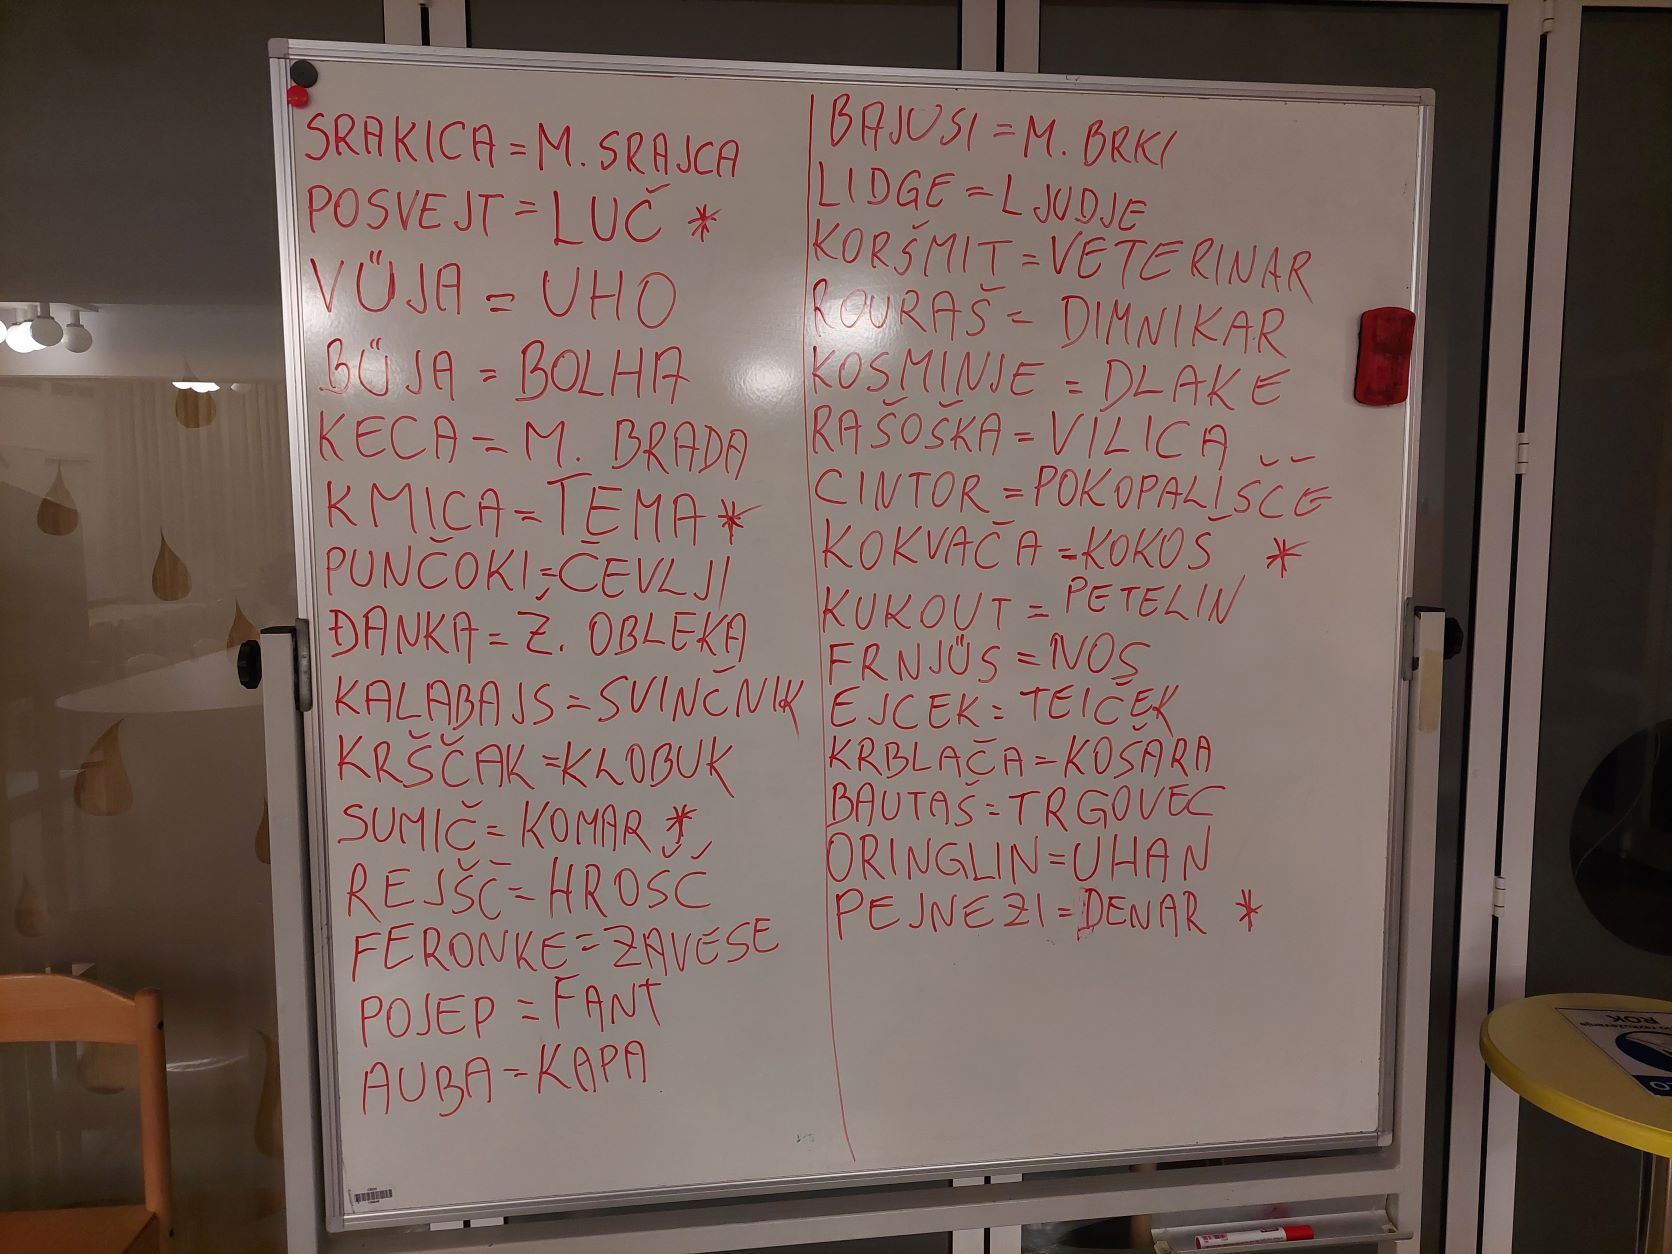 SRAKICA = M. SRAJCA
POSVEJT = LUČ *
VÜJA = UHO
BÜJA = BOLHA
KECA = M. BRADA
KMICA = TEMA *
PUNČOKI = ČEVLJI
ĐANKA = Ž. OBLEKA
KALABAJS = SVINČNIK
KRŠČAK = KLOBUK
SUMIČ = KOMAR *
REJŠČ = HROŠČ
FERONKE = ZAVESE
POJEP = FANT
AUBA = KAPA
BAJÜSI = M. BRKI
LIDGE = LJUDJE
KORŠMIT = VETERINAR
ROURAŠ = DIMNIKAR
KOSMINJE = DLAKE
RAŠOŠKA = VILICA
CINTOR = POKOPALIŠČE
KOKVAČA = KOKOŠ *
KUKOUT = PETELIN
FRNJÜS = NOS
EJCEK = TEIČEK
KRBLAČA = KOŠARA
BAUTAŠ = TRGOVEC
ORINGLIN = UHAN
PEJNEZI = DENAR *
ROK